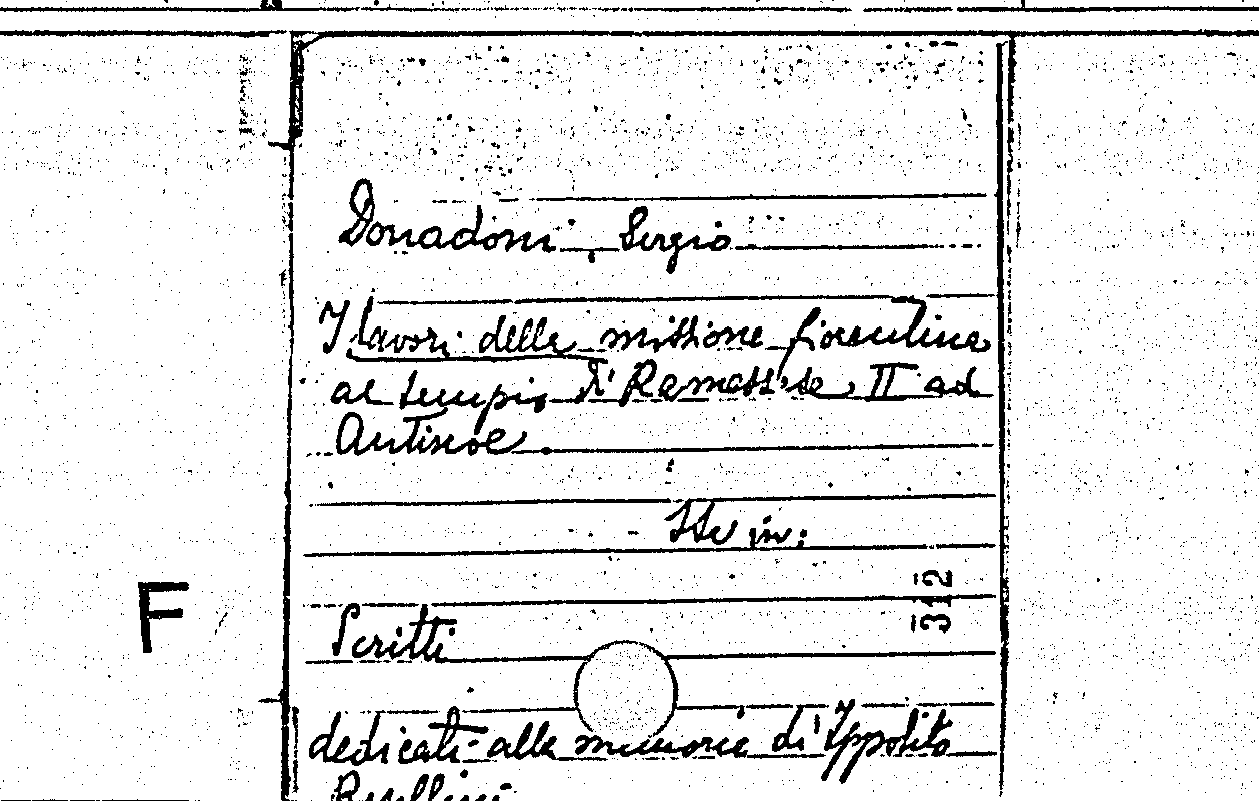 Donadoni, Sergio
I lavori della missione fiorentina
al tempio di Ramesse II ad
Antinoe.
in:
312
F
Scritti
dedicati alla memoria di Ippolito
Rosellini